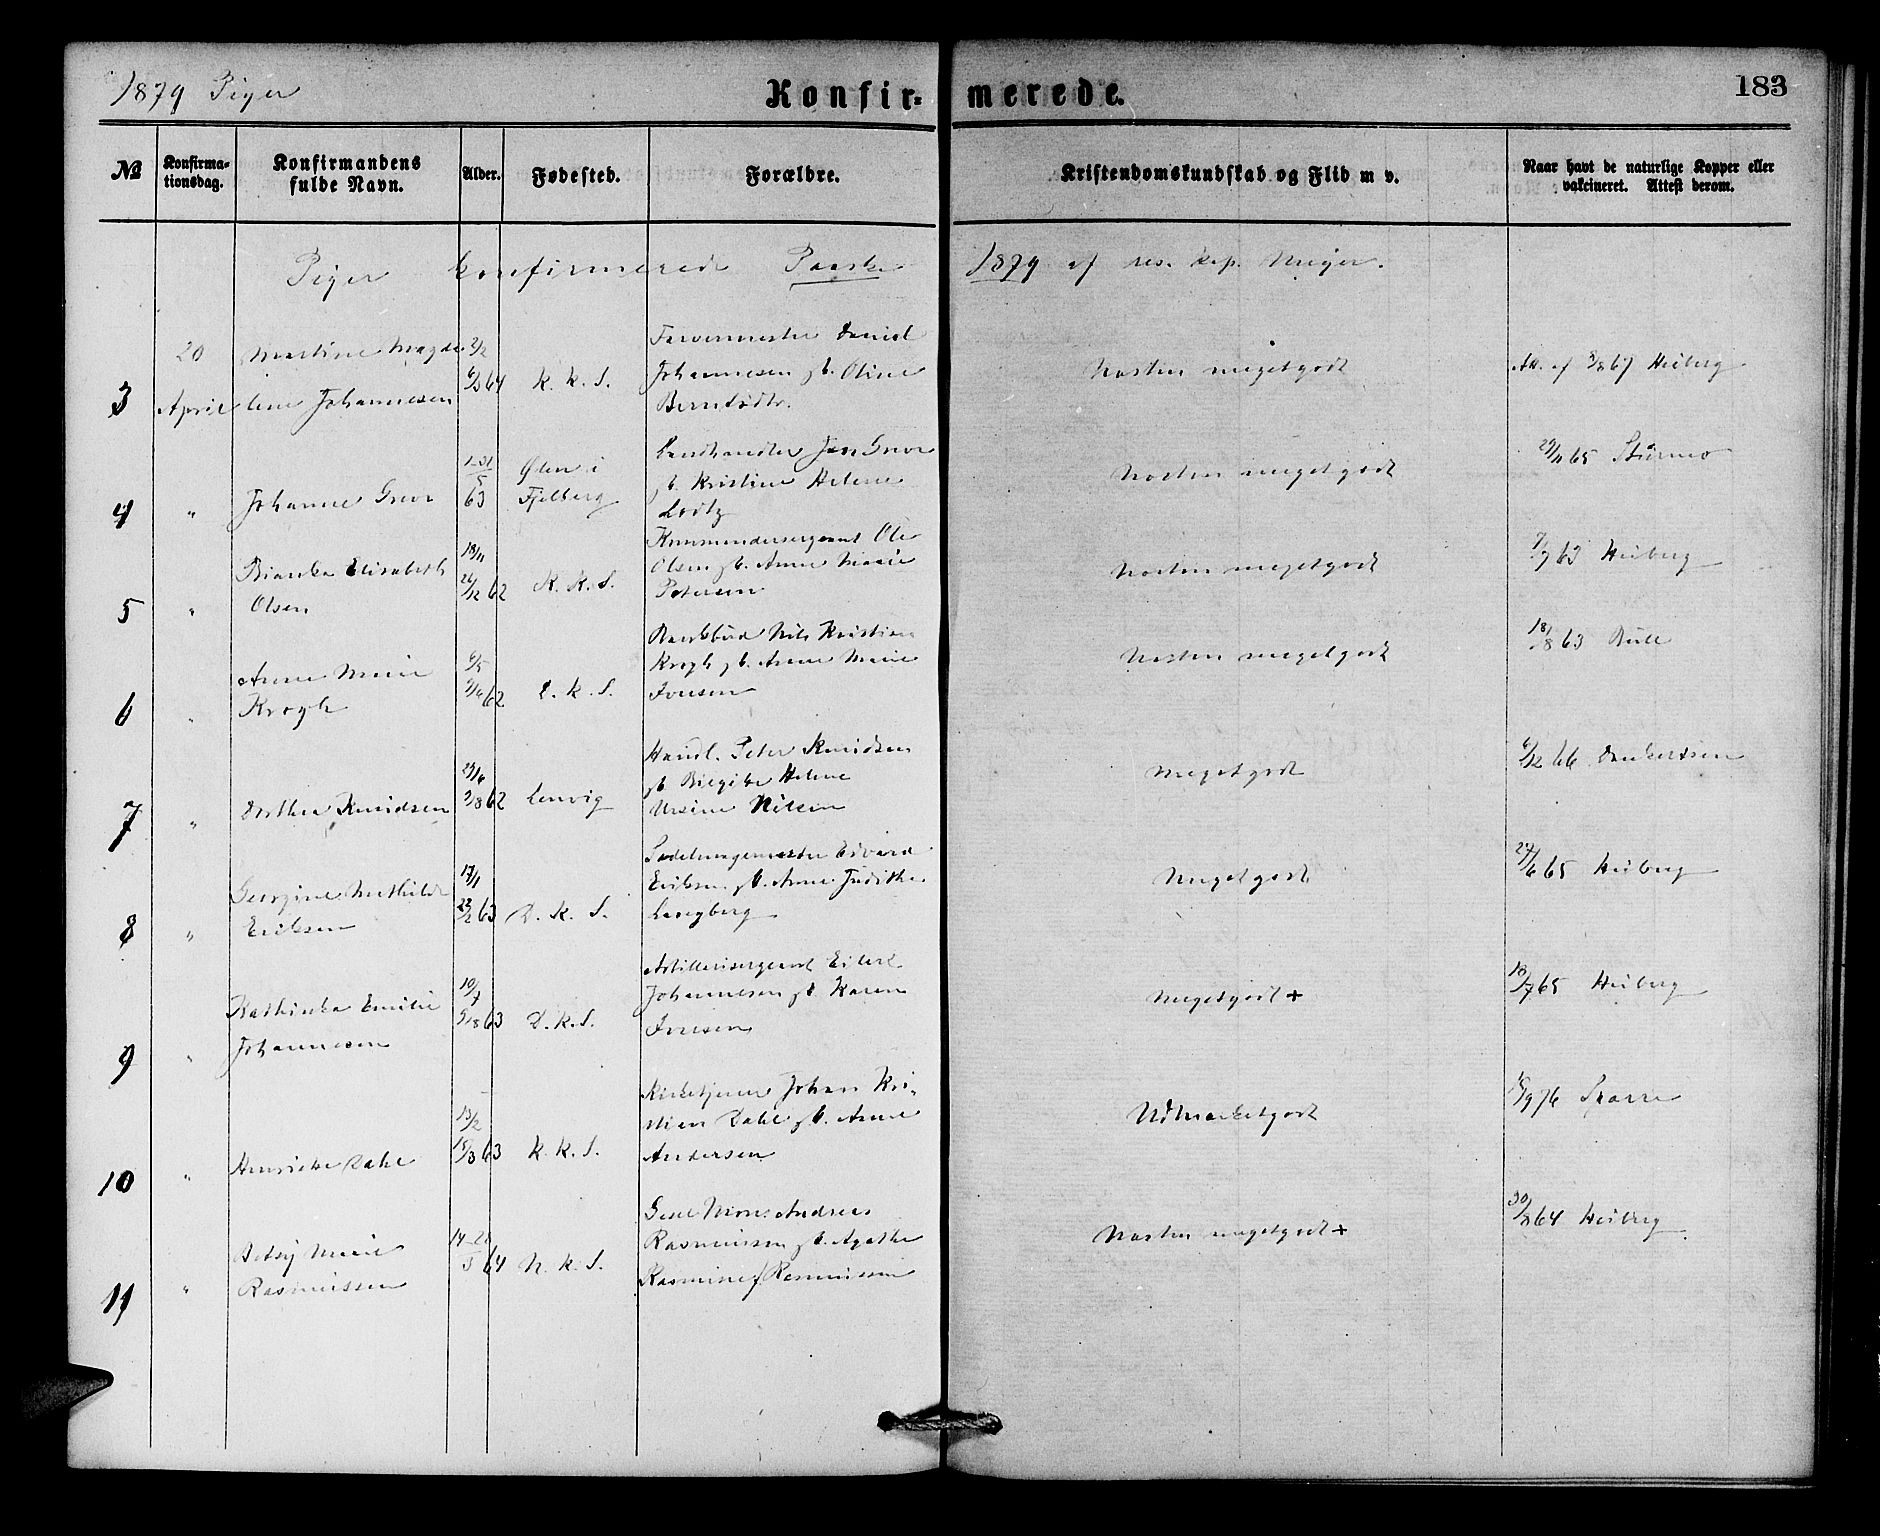 1879 Piger
Konfir-
merede.
183
No
Konfirma-
tionsdag.
Konfirmandens
fulde Navn.
Alder.
Fødested.
Forældre.
Kristendomskundskab og Flid m v.
Naar havt de naturlige Kopper eller
vakcineret. Attest derom.
Piger konfirmerede Paaske 1879 af res. kap. Meyer.
3
20
April
Martine Magda
lene Johannesen
2/2
6/3 64
K. K. S.
Farvermester Daniel
Johannesen gb. Oline
Berntsdtr.
Næsten megetgodt
Att. af 3/8 67 Heiberg
4
"
Johanne Greve
1-31
5
63
Ølen i
Fjelberg
Landhandler Jens Greve
gb. Kristine Helene
Lodtz
Næsten megetgodt
29/11 65 Stürmer
5
"
Bianka Elisabeth
Olsen
18/11
26/12 62
K. K. S.
Kommandersergeant Ole
Olsen gb. Anne Marie
Petersen
Næsten megetgodt
7/7 63 Heiberg
6
"
Anne Marie
Krogh
6/5
9/6 62
D. K. S.
Bankbud Nils Kristian
Krogh gb. Anne Marie
Ivesen
Næsten megetgodt
18/8 63 Bull
7
"
Dorthea Knudsen
29/6
3/8 62
Lenvig
Handl. Peter Knudsen
gb. Birgitte Helene
Ursine Nilsen
Megetgodt
6/12 66 Dankertsen
8
"
Georgine Mathilde
Eriksen
17/1
22/2 63
D. K. S.
Sadelmagermester Edvard
Eriksen gb. Anne Judithe
Langberg
Megetgodt
27/6 65 Heiberg
9
"
Kathinka Emilie
Johannesen
10/7
5/8 63
D. K. S.
Artillerisergeant Eilert
Johannesen gb. Karen
Ivesen
Megetgodt +
18/7 65 Heiberg
10
"
Henrikke Dahl
13/2
15/3 63
K. K. S.
Kirketjener Johan Kri-
stian Dahl gb. Anne
Andersen
Udmærketgodt
15/9 76 Sparre
11
"
Betsy Marie
Rasmussen
14-28
3 64
N. K. S.
Mons Andreas
Rasmussen gb. Agathe
Rasmine Rasmussen
Næsten megetgodt +
30/8 64 Heiberg